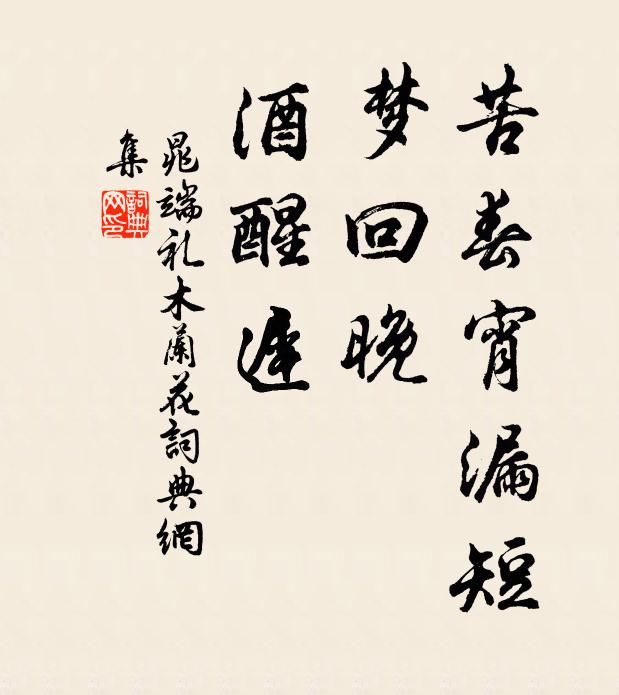 苦春宵漏短
梦回晚
酒醒遅
晁端礼木蘭花詞典網
集
詞典
网印